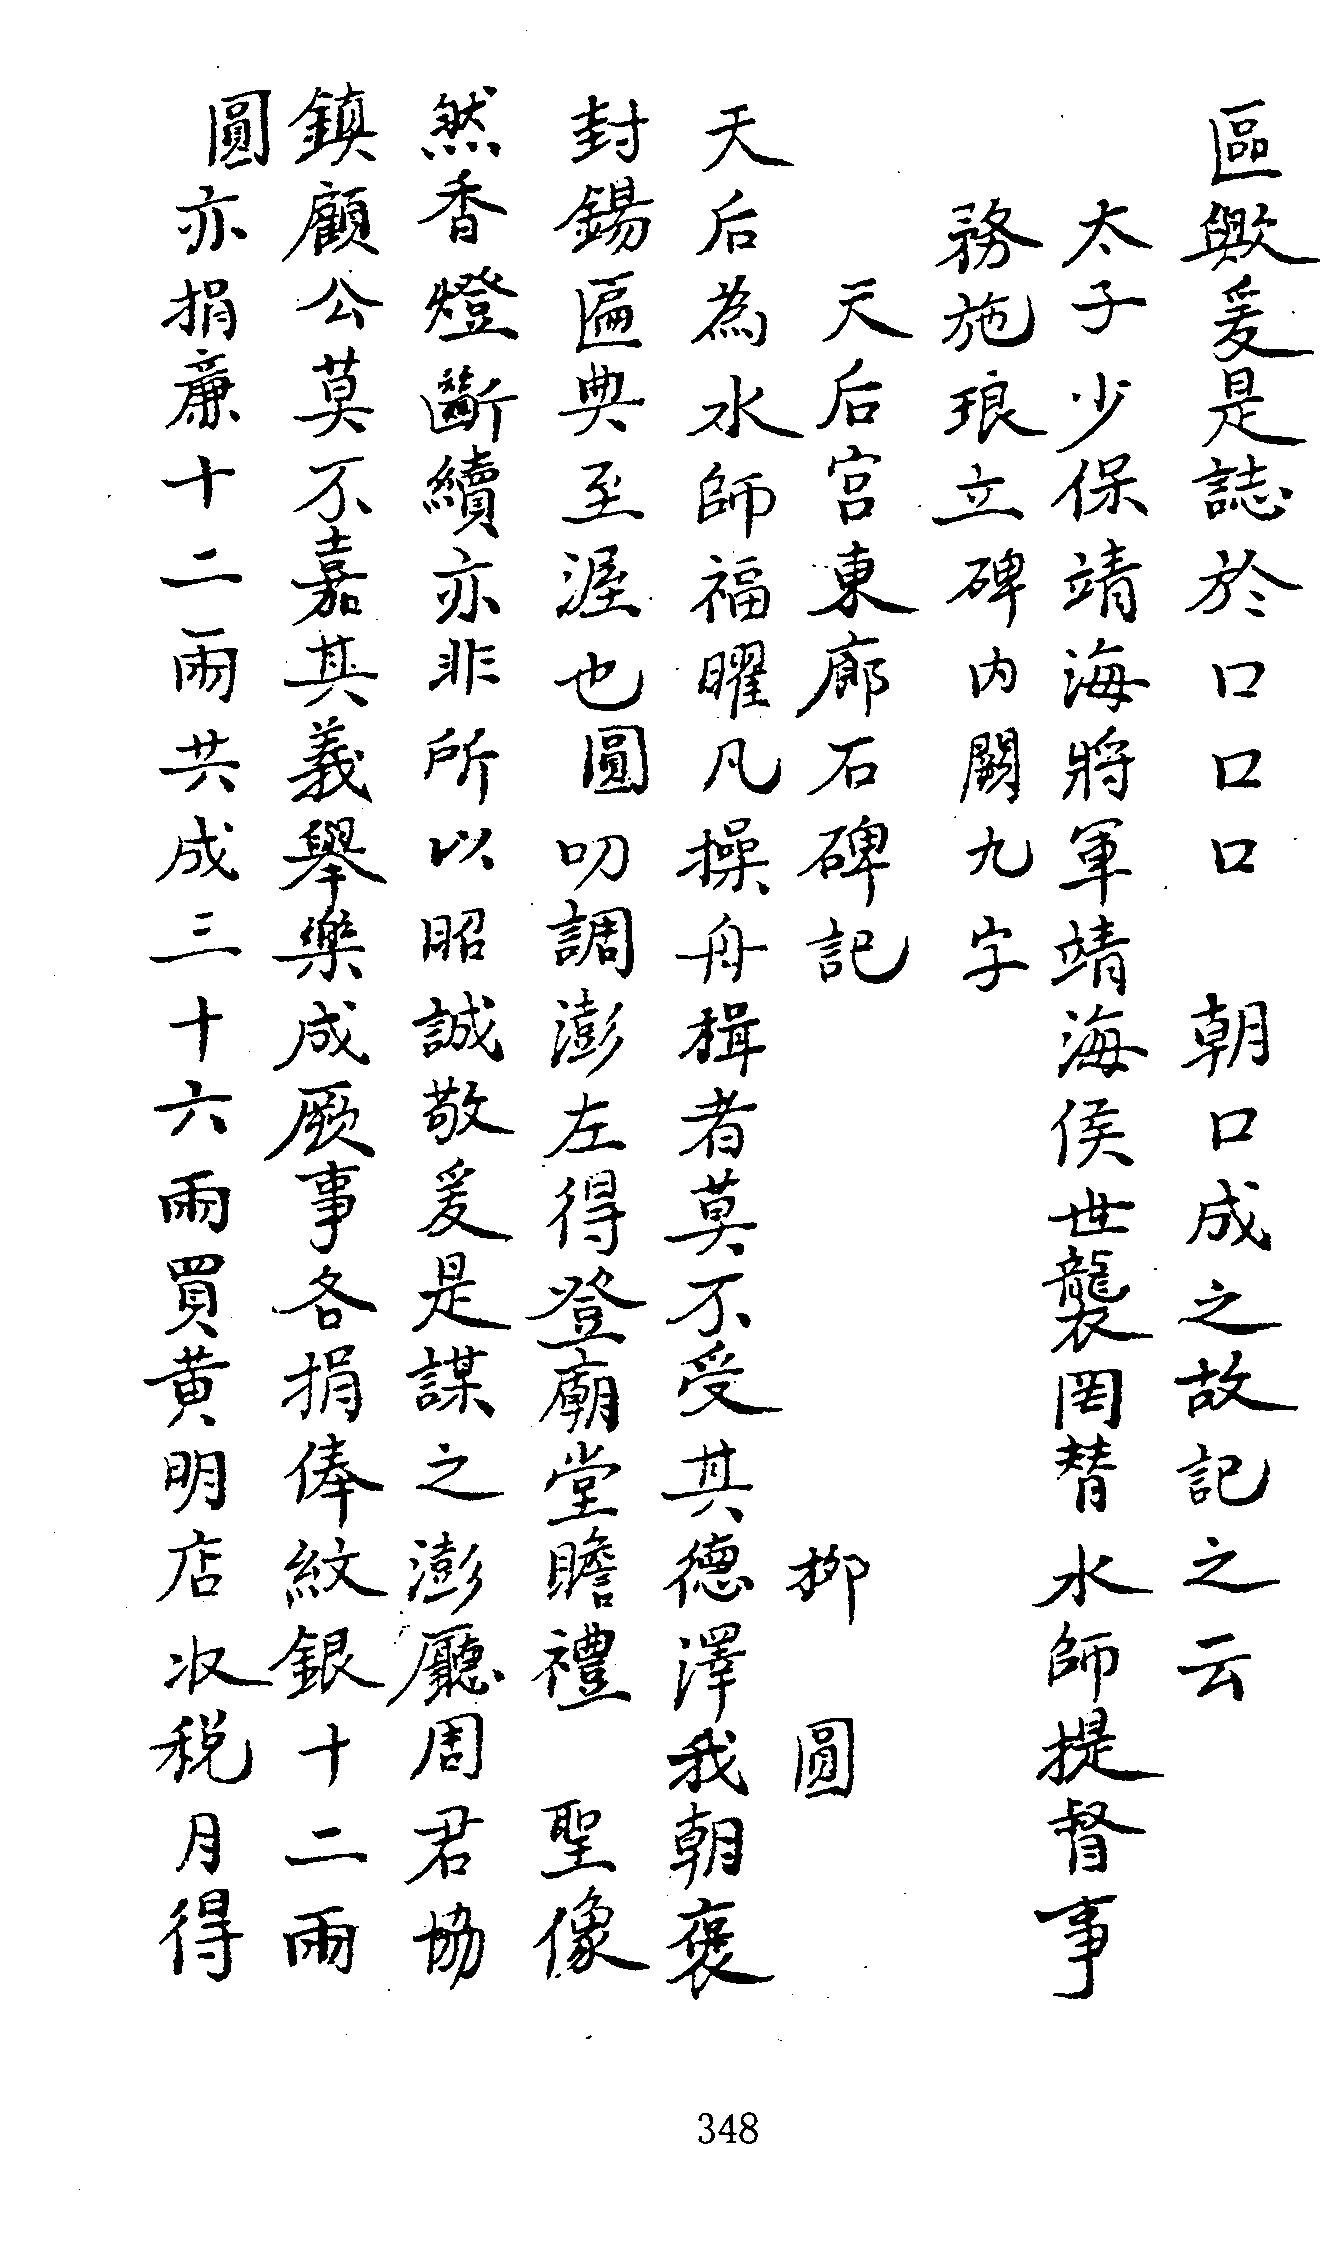 區歟爰是誌於口口口　朝口成之故記之云
太子少保靖海將軍靖海侯世襲罔替水師提督事
務施琅立碑內闕九字
天后宮東廊石碑記　柳　圓
天后為水師福曜凡操舟楫者莫不受其德澤我朝褒
封錫匾典至渥也圓叨調澎左得登廟堂瞻禮　聖像
然香燈斷續亦非所以昭誠敬爰是謀之澎廳周君協
鎮顧公莫不嘉其義舉樂成厥事各捐俸紋銀十二兩
圓亦捐廉十二兩共成三十六兩買黃明店収稅月得
348